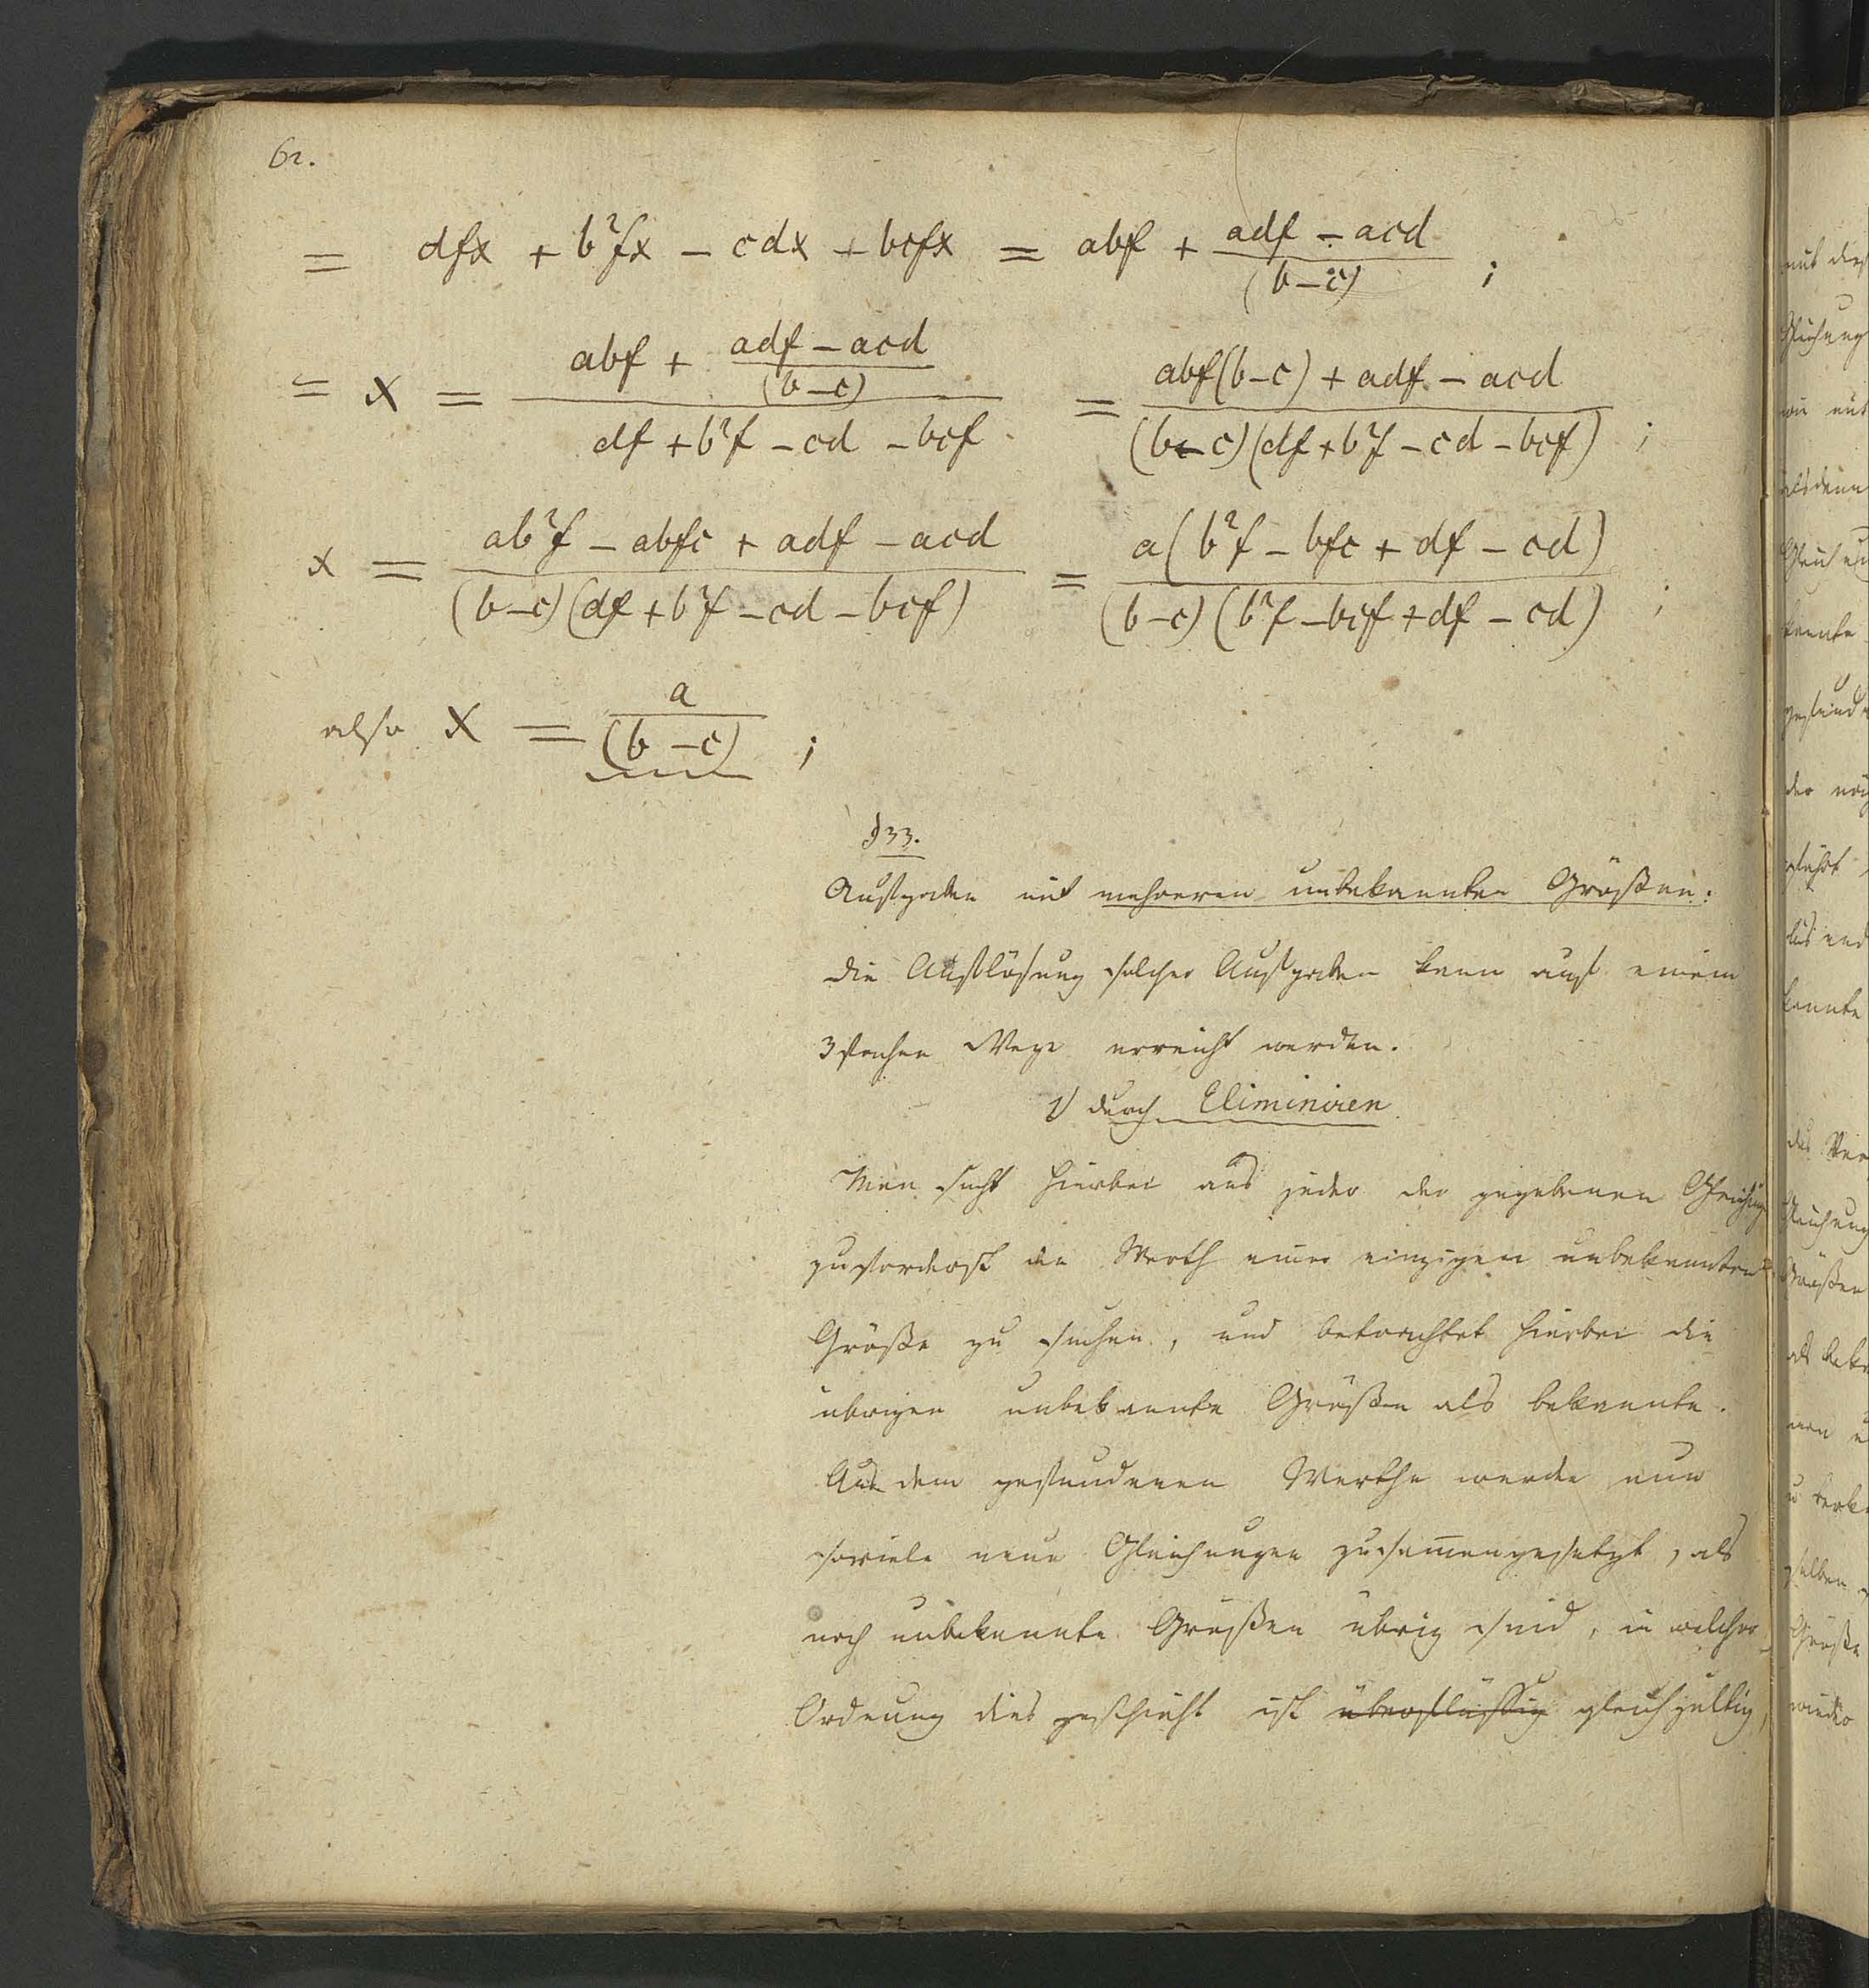 62.
= dfx + b²fx - cdx + bcfx = abf + (adf - acd)/(b-c) ;
= x = (abf + (adf - acd)/(b-c))/(df + b²f - cd - bcf) = (abf(b-c) + adf - acd)/((b-c)(df + b²f - cd - bcf)) ;
x = (ab²f - abfc + adf - acd)/((b-c)(df + b²f - cd - bcf)) = a(b²f - bfc + df - cd)/((b-c)(b²f - bcf + df - cd)) ;
also x = a/(b-c) ;
§33.
Aufgaben mit mehreren unbekannten Größen:
die Auflösung solcher Aufgaben kann auf einem
3fachen Wege erreicht werden.
1) durch Eliminiren
Man sucht hierbei aus jeder der gegebenen
zuforderst den Werth einer einzigen unbekannten
Größe zu suchen, und betrachtet hierbei die
übrigen unbekannte Größen als bekannte.
Aus dem gefundenen Werthe werden nun
soviele neue Gleichungen zusammengesetzt, als
noch unbekannte Größen übrig sind, in welcher
Ordnung dies geschieht ist überflüssig gleichgültig,